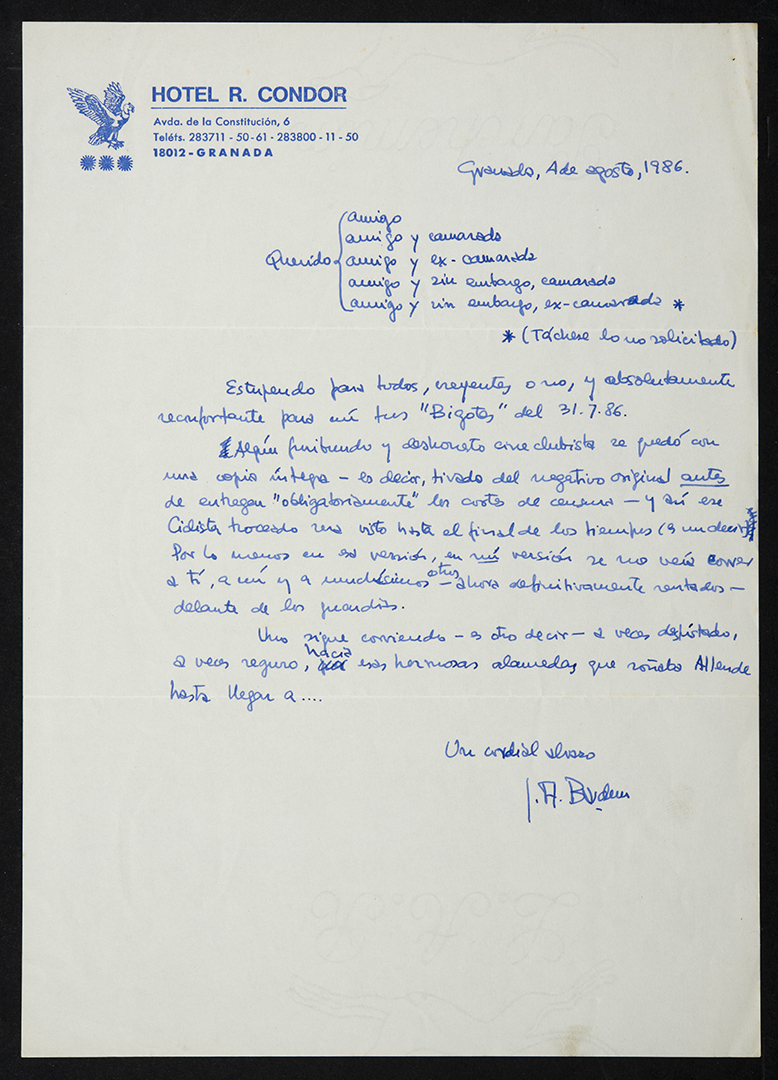 HOTEL R. CONDOR
Avda. de la Constitución, 6
Teléts. 283711 - 50 - 61 - 283800 - 11 - 50
18012 - GRANADA
Granada, 4 de agosto, 1986.
amigo
amigo y camarada
Querido amigo y ex-camarada
amigo y sin embargo, camarada
amigo y sin embargo, ex-camarada *
* (Táchese lo no solicitado)
Estupendo para todos, creyentes o no, y absolutamente
reconfortante para mí tus "Bigotes" del 31.7.86.
Algún furibundo y deshonesto cineclubista se quedó con
una copia íntegra – es decir, tirado del negativo original antes
de entregar "obligatoriamente" los cortes de censura – y así ese
Ciclista troceado será visto hasta el final de los tiempos (es un decir)
Por lo menos en esa versión, en mi versión se nos veía correr
a tí, a mí y a muchísimos otros – ahora definitivamente sentados –
delante de los guardias.
Uno sigue corriendo – es otro decir – a veces despistado,
a veces seguro, hacia esas hermosas alamedas que soñaba Allende
hasta llegar a ....
Un cordial abrazo
J. A. Bardem